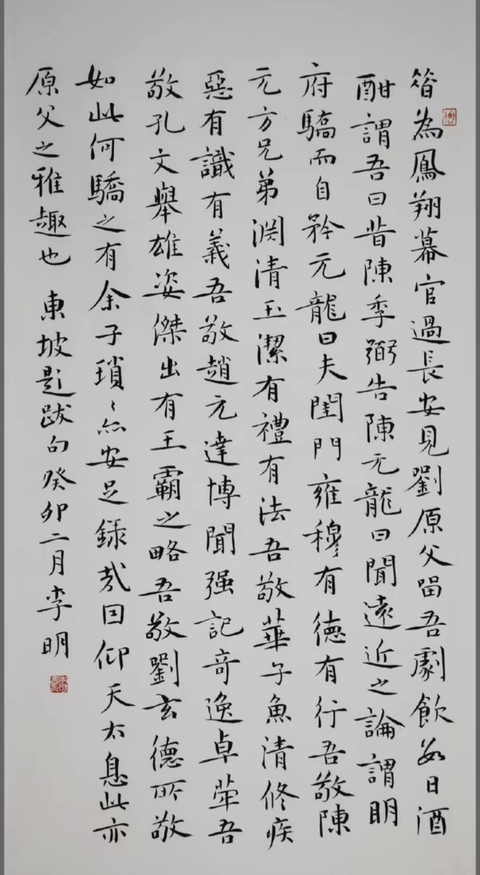 昔為鳳翔幕官過長安見劉原父留吾劇飲数日酒
酣謂吾曰昔陳季弼告陳元龍曰聞遠近之論謂明
府驕而自矜元龍曰夫閨門雍穆有德有行吾敬陳
元方兄弟淵清玉潔有禮有法吾敬華子魚清修疾
惡有識有義吾敬趙元達博聞强記奇逸卓犖吾
敬孔文舉雄姿傑出有王霸之略吾敬劉玄德所敬
如此何驕之有余子瑣〻亦安足録哉因仰天太息此亦
原父之雅趣也 東坡題跋句癸卯二月李明